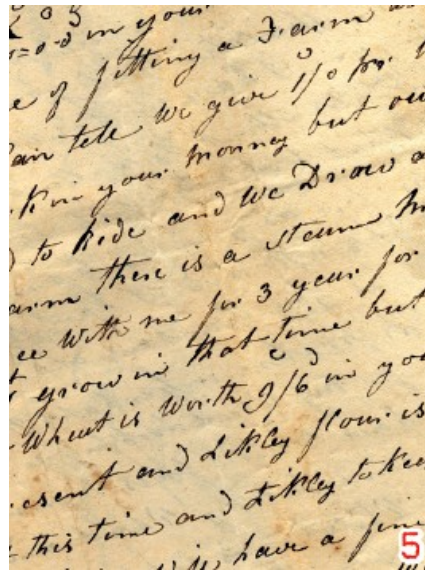 =0=0 in your
e of fitting a Farm
can tele we give 1/0 pr.
K in your monney but
to Ride and we Draw
arm there is a steam
ee with me for 3 year for
grow in that time but
Wheat is worth 9/6 in yo
esent and Likley flour is
this time and Likley to Kee
have a fine
5